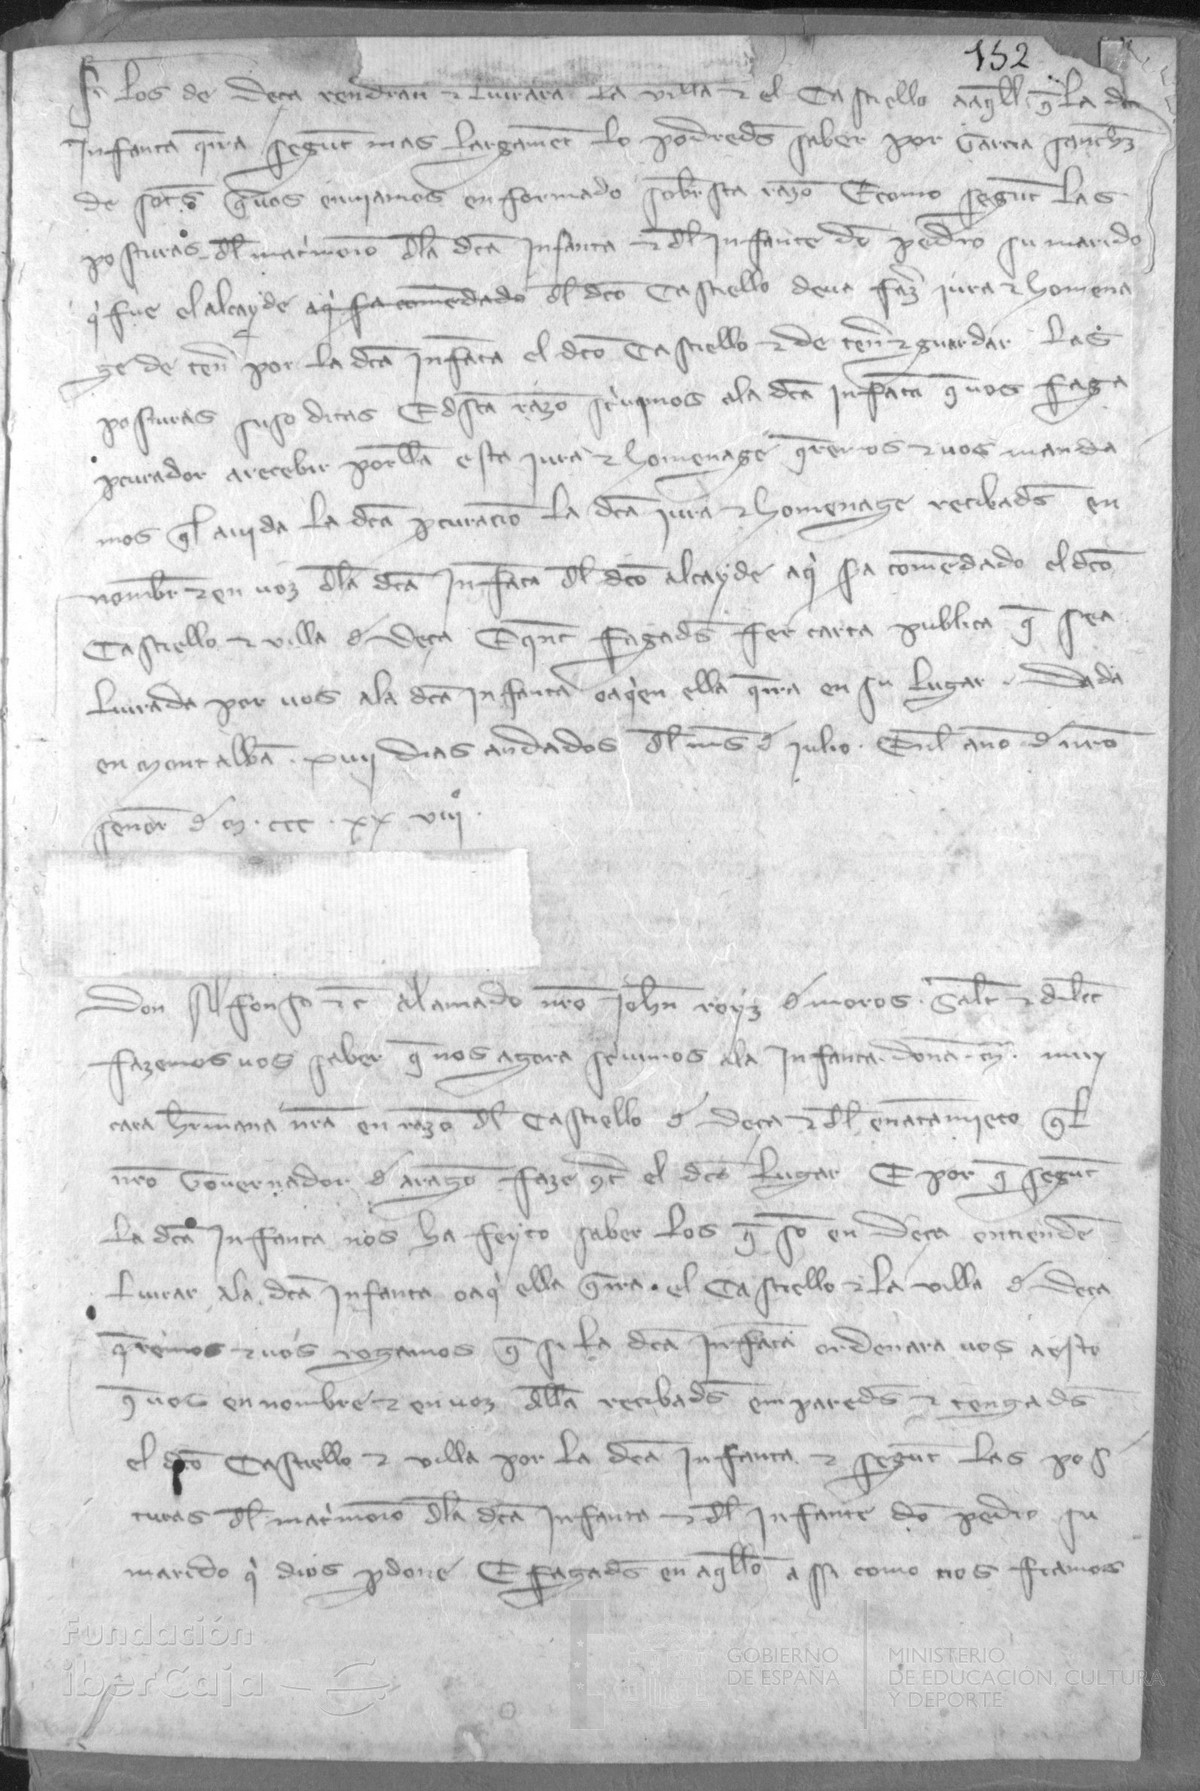 152
si los de Deça rendran & liurara la villa & el Castiello aaqll q̃ la dca
Infanta qrra segunt mas largament lo podredes saber por Garcia Sanchz
de sots q̃ vos enviamos enformado sobresta razo E como segunt las
posturas dl matimonio dla dca Infanta & dl Infante do pedro su marido
q̃ fue el alcayde aqi fa comendado dl dco Castiello deua faz iura & homena
ge de ten por la dca Infata el dco Castiello & de ten & guardar las
posturas suso ditas E dsta razo scriuimos ala dca Infata q̃ vos faga
pcurador a recebir porlla esta iura & homenage qremos & vos manda
mos ql auida la dca pcuracio la dca iura & homenage recibads en
nombr & en uoz dla dca Infata dl dco alcayde aqi fa comedado el dco
Castiello & villa d Deça E qnt fagads fer carta publica q̃ sea
liurada por uos ala dca Infanta o aqien ella qrra en su lugar. Dada
en Montalba. xviij dias andados dl mes d julio. Enl ano d nro
senor d M. ccc. xx viij.
Don Alfonso &c Al amado nro Johñ royz d moros. Salt & dilect
fazemos uos saber q̃ nos agora scriuimos ala Infanta. dona. M. muy
cara hrmana nra en razo dl Castiello d Deça & dl enatamieto ql
nro Gouernador d arago faze qt el dco lugar E por q̃ segunt
la dca Infanta nos ha feyto saber los q̃ so en Deça entiende
liurar ala dca Infanta o aqi ella qrra. el Castiello & la villa d Deça
qremos & uos rogamos q̃ si la dca Infata ordenara uos a esto
q̃ uos en nombre & en uoz dlla recibads emparedes & tengads
el dco Castiello & villa por la dca Infanta & segunt las pos
turas dl matimonio dla dca Infanta & dl Infante do pedro su
marido q̃ dios pdone E fagads en aqllo assi como nos fiamos
Fundación
iberCaja
GOBIERNO
DE ESPAÑA
MINISTERIO
DE EDUCACIÓN, CULTURA
Y DEPORTE